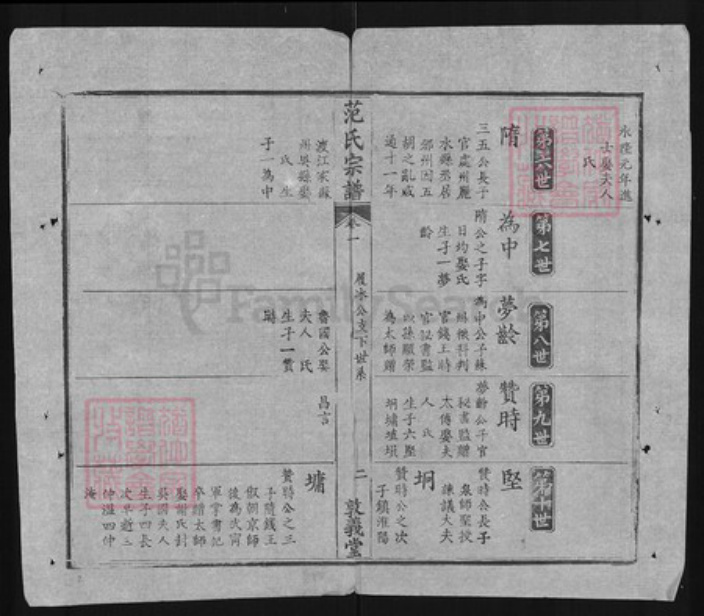 永隆元年進
士娶夫人
氏
第六世
隋
三五公長子
官處州麗
水縣丞居
鄧州因五
胡之亂咸
通十一年
渡江家蘇
州吳縣娶
氏生
子一為中
第七世
為中
隋公之子字
日均娶氏
生子一夢
齡
第八世
夢齡
為中公子蘇
州
判
官錢王時
官秘書監
以孫顯榮
為太師贈
魯國公娶
夫人氏
生子一贊
時
第九世
贊時
夢齡公子官
秘書監贈
太傅娶夫
人氏
生子六堅
坰墉埴埧
昌言
第十世
堅
贊時公長子
襄師堅授
諫議大夫
坰
贊時公之次
子鎮淮陽
墉
贊時公之三
子隨錢王
俶朝京師
後為武甯
軍掌書記
卒贈太師
娶
氏封
吳國夫人
生子四長
次早逝三
仲溫四仲
淹
范氏宗譜
卷一
履冰公支下世系
二
敦義堂
FamilySearch